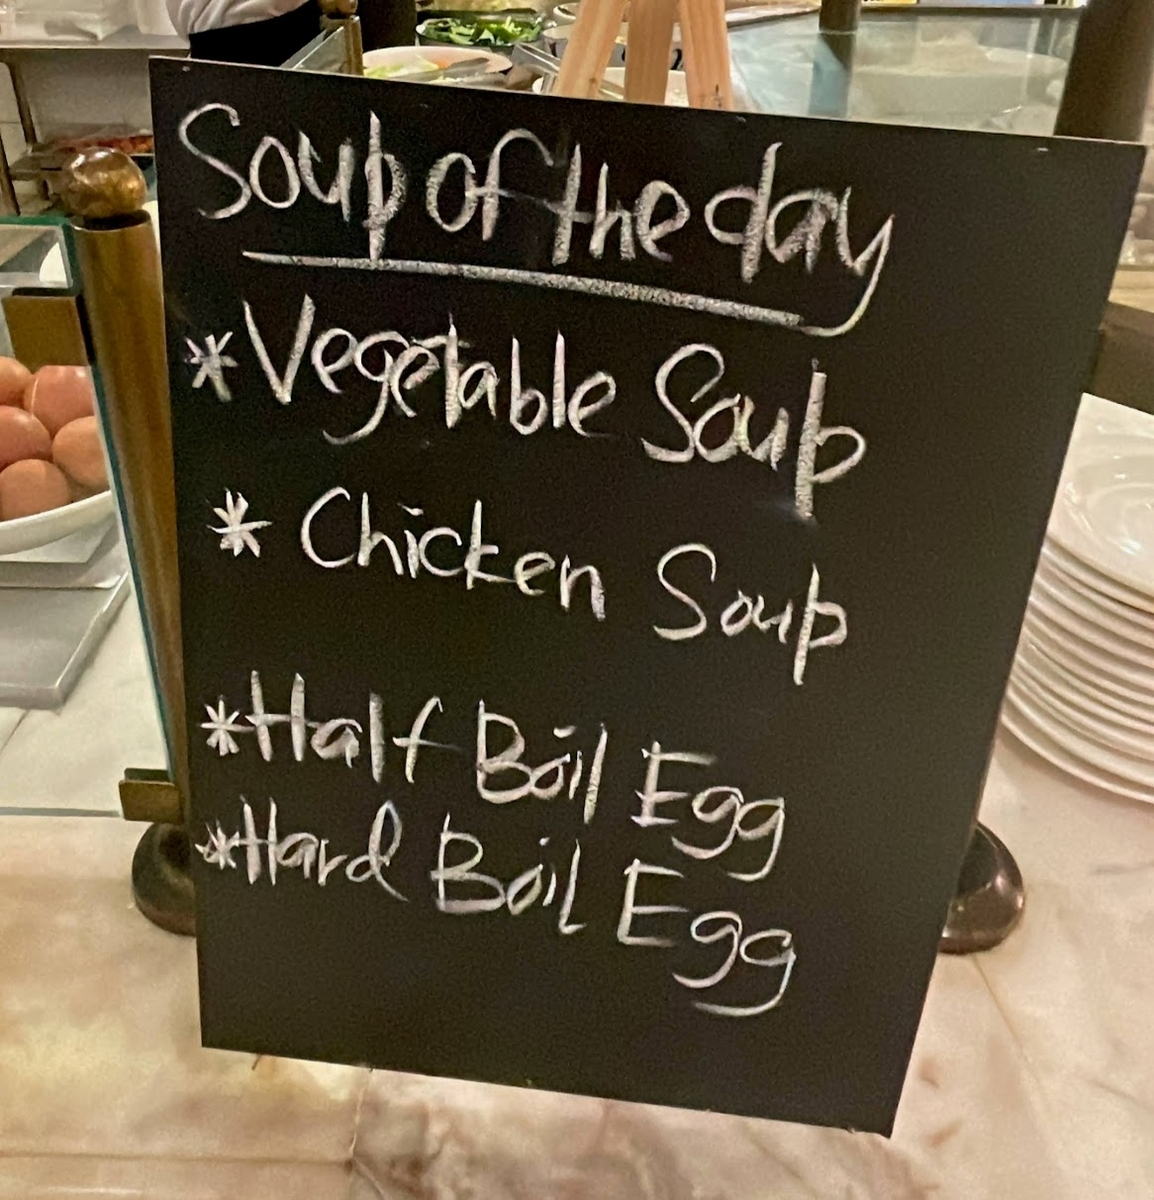 Soup of the day
* Vegetable Soup
* Chicken Soup
* Half Boil Egg
* Hard Boil Egg